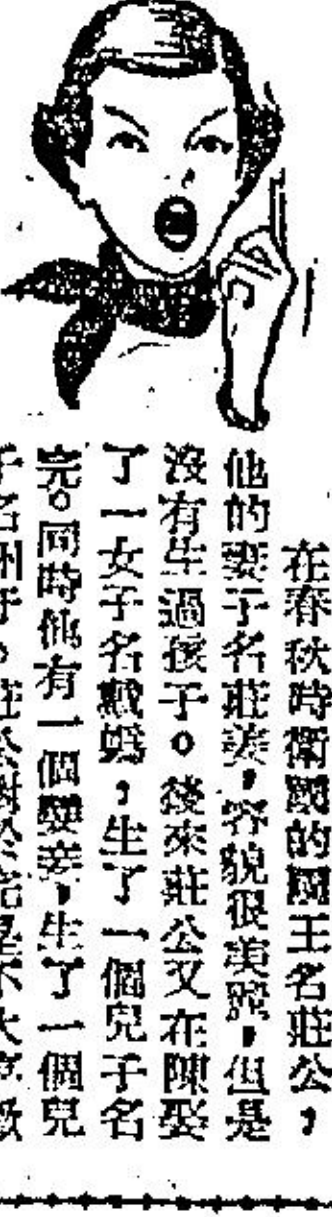 在春秋時衛國的國王名莊公，
他的妻子名莊姜，容貌很美麗，但是
沒有生過孩子。後來莊公又在陳娶
了一女子名戴媯，生了一個兒子名
完。同時他有一個嬖妾，生了一個兒
子名州吁。莊公對於完是不大喜歡